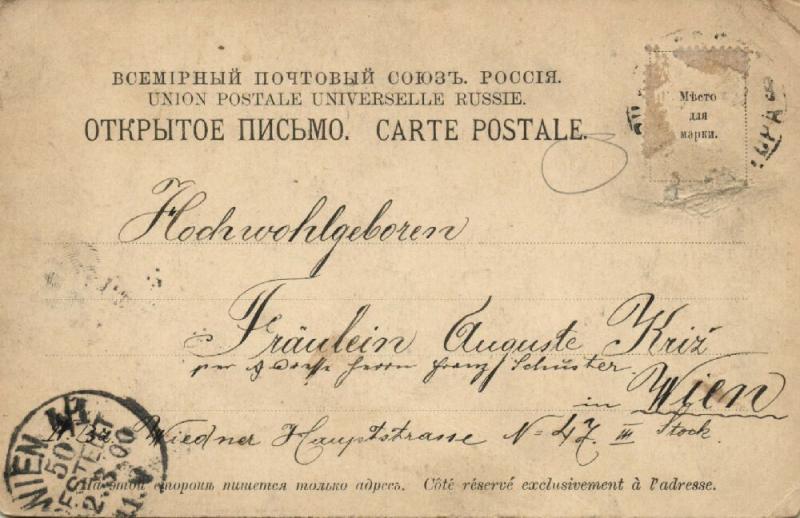 ВСЕМІРНЫЙ ПОЧТОВЫЙ СОЮЗЪ. РОССІЯ.
UNION POSTALE UNIVERSELLE RUSSIE.
ОТКРЫТОЕ ПИСЬМО. CARTE POSTALE.
Мѣсто
для
марки.
Hochwohlgeboren
Fräulein Auguste Križ
per Adresse Herrn Franz Schuster
in Wien
Wiedner Hauptstrasse N= 47 III Stock.
WIEN
50
BESTELLT
2.3.00
На этой сторонѣ пишется только адресъ. Côté réservé exclusivement à l'adresse.